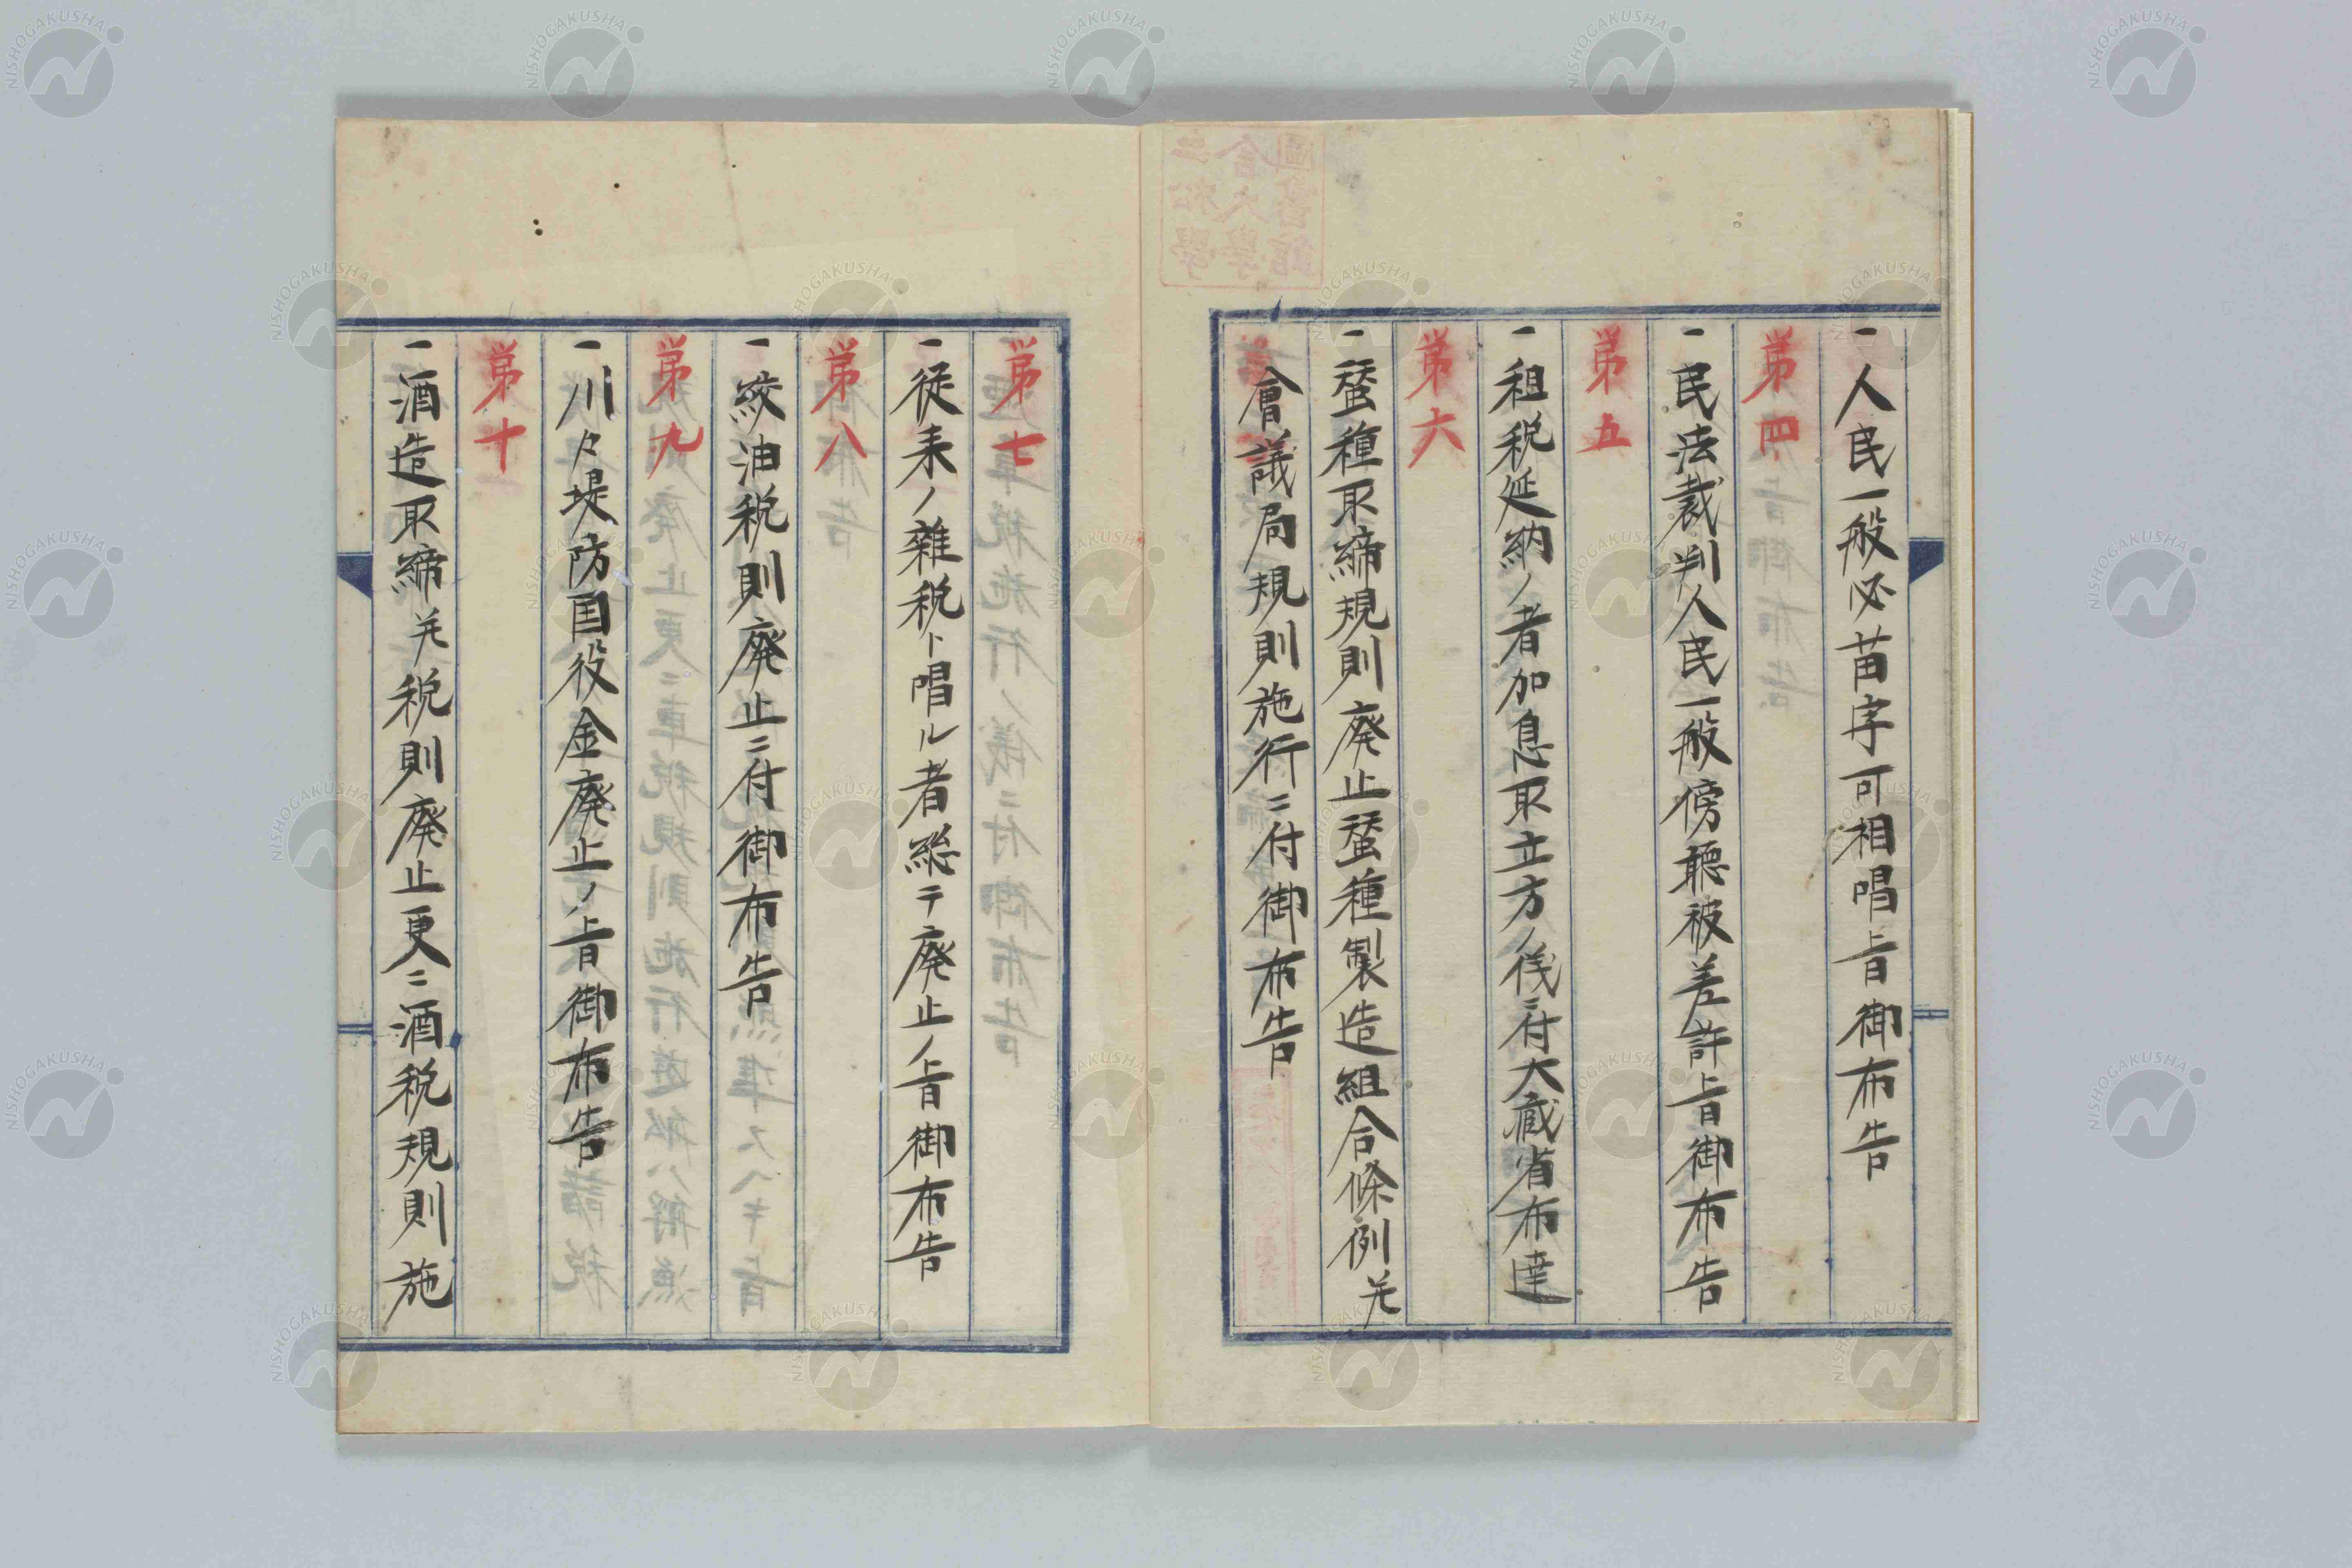 一人民一般必苗字可相唱旨御布告
第四
一民法裁判人民一般傍聴被差許旨御布告
第五
一租税延納ノ者加息取立方ノ儀ニ付大蔵省布達
第六
一蚕種取締規則廃止蚕種製造組合條例并
會議局規則施行ニ付御布告
第七
一従来ノ雑税ト唱ル者総テ廃止ノ旨御布告
第八
一絞油税則廃止ニ付御布告
第九
一川々堤防国役金廃止ノ旨御布告
第十
一酒造取締并税則廃止更ニ酒税規則施
NISHOGAKUSHA